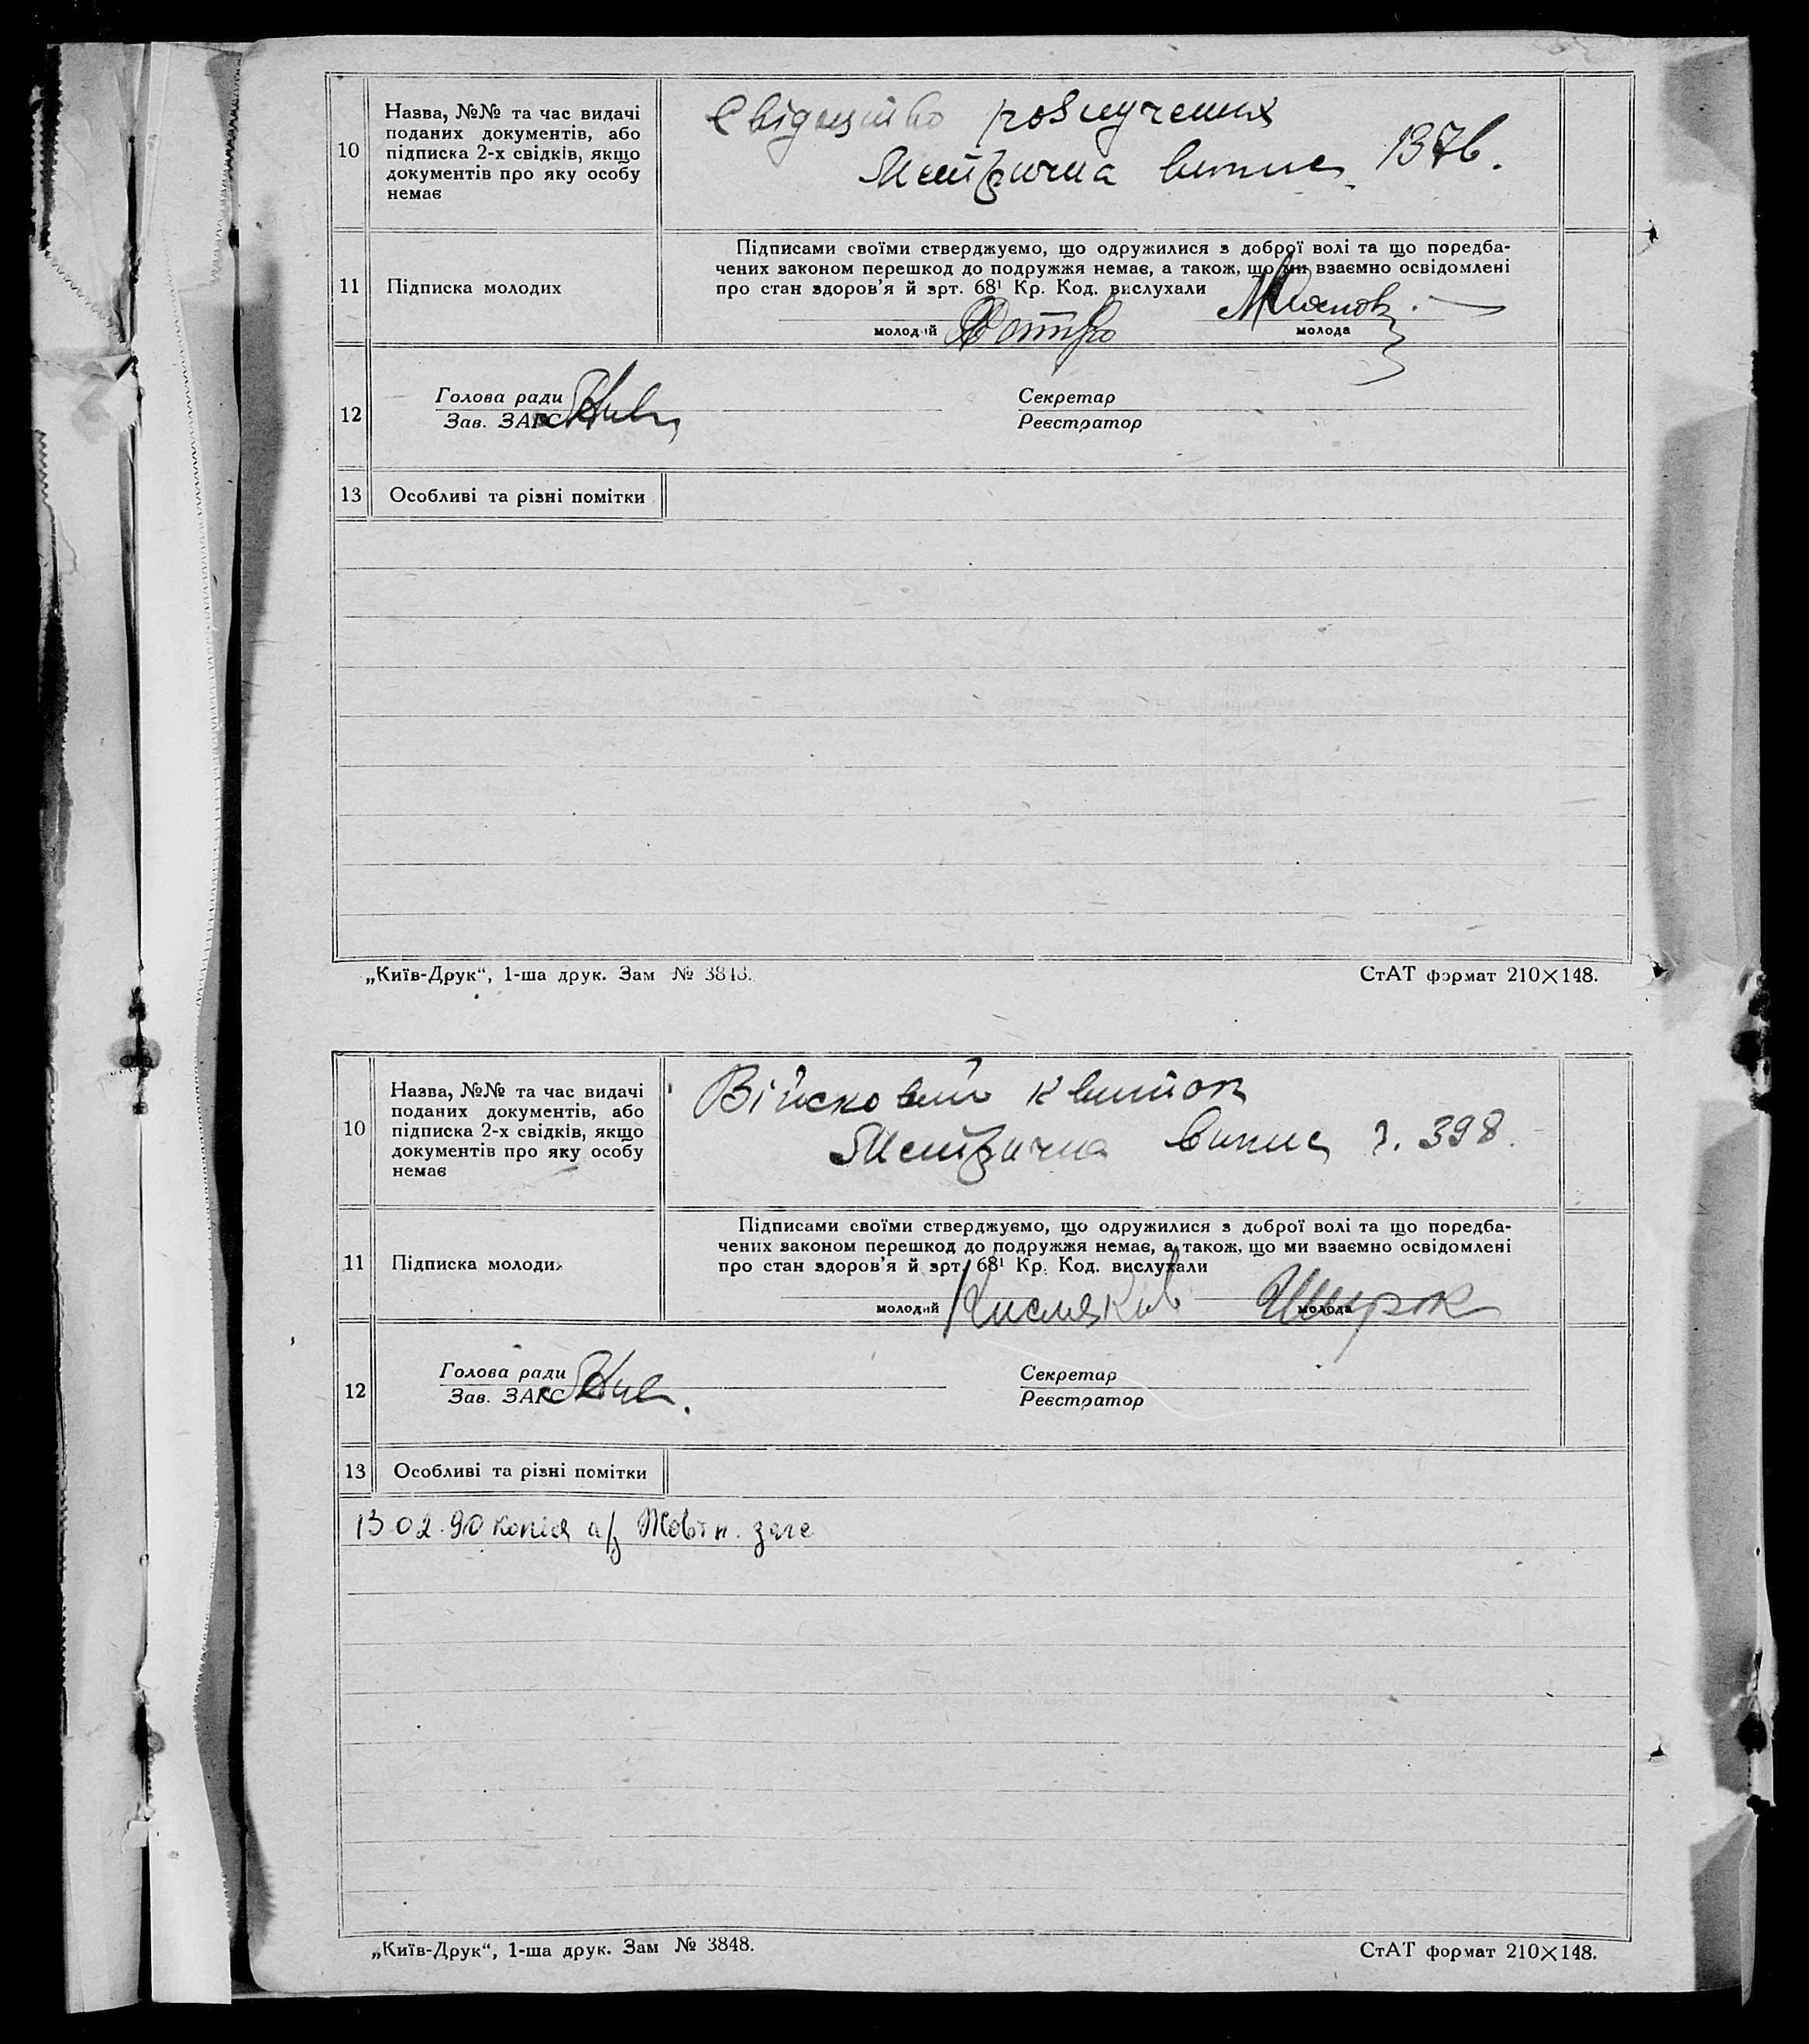 10
Назва, №№ та час видачі
поданих документів, або
підписка 2-х свідків, якщо
документів про яку особу
немає
Свідоцтво розлучения
Метрична випис 1376.
11
Підписка молодих
Підписами своїми стверджуємо, що одружилися з доброї волі та що передба-
чених законом перешкод до подружжя немає, а також, що ми взаємно освідомлені
про стан здоров'я й арт. 68¹ Кр. Код. вислухали
молодий
молода
12
Голова ради
Зав. ЗАГС
Секретар
Реєстратор
13
Особливі та різні помітки
„Київ-Друк“, 1-ша друк. Зам № 3848.
СтАТ формат 210×148.
10
Назва, №№ та час видачі
поданих документів, або
підписка 2-х свідків, якщо
документів про яку особу
немає
Військовий квиток
Метрична випис г. 398.
11
Підписка молодих
Підписами своїми стверджуємо, що одружилися з доброї волі та що передба-
чених законом перешкод до подружжя немає, а також, що ми взаємно освідомлені
про стан здоров'я й арт. 68¹ Кр. Код. вислухали
молодий Кисляков
молода
12
Голова ради
Зав. ЗАГС
Секретар
Реєстратор
13
Особливі та різні помітки
13 02.90 копія а/з Жовтн. загс
„Київ-Друк“, 1-ша друк. Зам № 3848.
СтАТ формат 210×148.